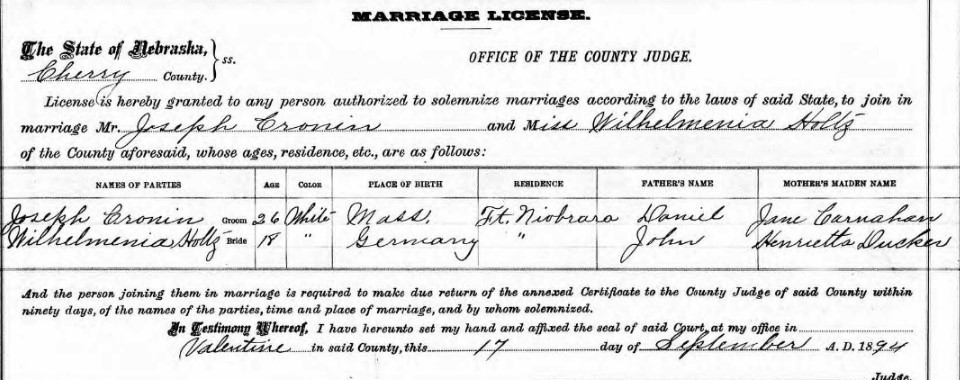 MARRIAGE LICENSE.
The State of Nebraska, } ss.
Cherry County.
OFFICE OF THE COUNTY JUDGE.
License is hereby granted to any person authorized to solemnize marriages according to the laws of said State, to join in
marriage Mr. Joseph Cronin and Miss Wilhelmenia Holtz
of the County aforesaid, whose ages, residence, etc., are as follows:
NAMES OF PARTIES AGE COLOR PLACE OF BIRTH RESIDENCE FATHER'S NAME MOTHER'S MAIDEN NAME
Joseph Cronin Groom 26 White Mass. Ft. Niobrara Daniel Jane Carnahan
Wilhelmenia Holtz Bride 18 " Germany " John Henrietta Ducker
And the person joining them in marriage is required to make due return of the annexed Certificate to the County Judge of said County within
ninety days, of the names of the parties, time and place of marriage, and by whom solemnized.
In Testimony Whereof, I have hereunto set my hand and affixed the seal of said Court, at my office in
Valentine in said County, this 17 day of September A. D. 1894
Judge.